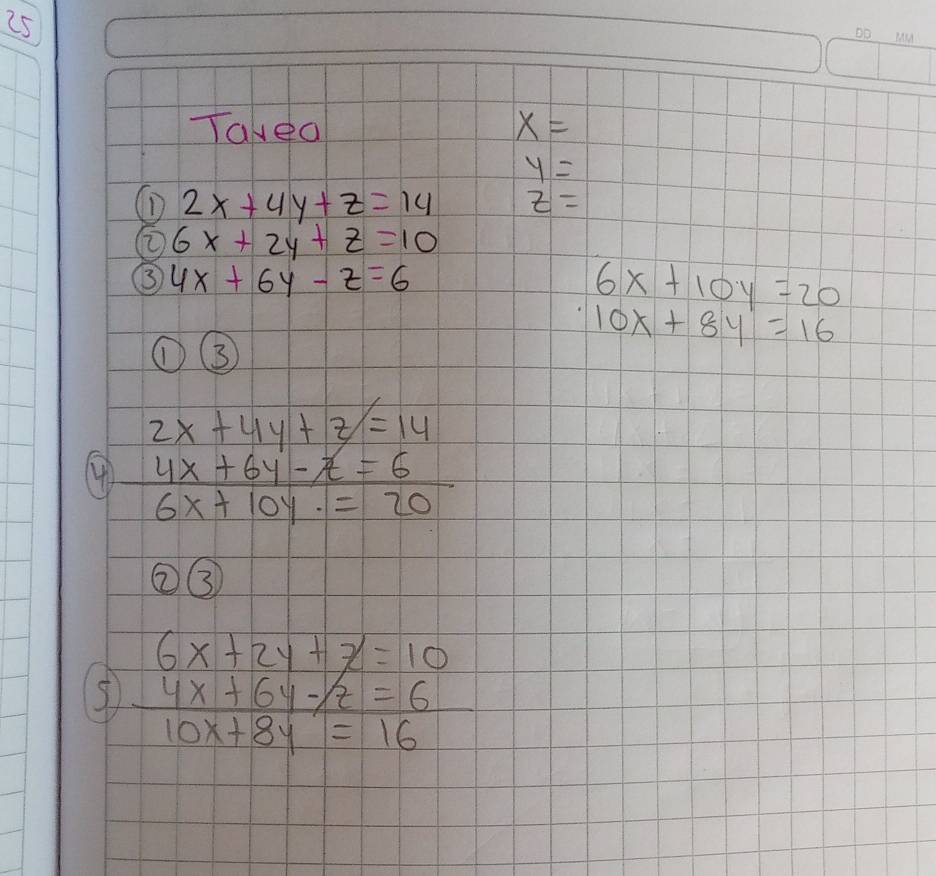 25
DD MM
Tarea
x =
y =
z =
① 2x + 4y + z = 14
② 6x + 2y + z = 10
③ 4x + 6y - z = 6
6x + 10y = 20
10x + 8y = 16
① ③
2x + 4y + z = 14
④ 4x + 6y - z = 6
6x + 10y = 20
② ③
6x + 2y + z = 10
⑤ 4x + 6y - z = 6
10x + 8y = 16